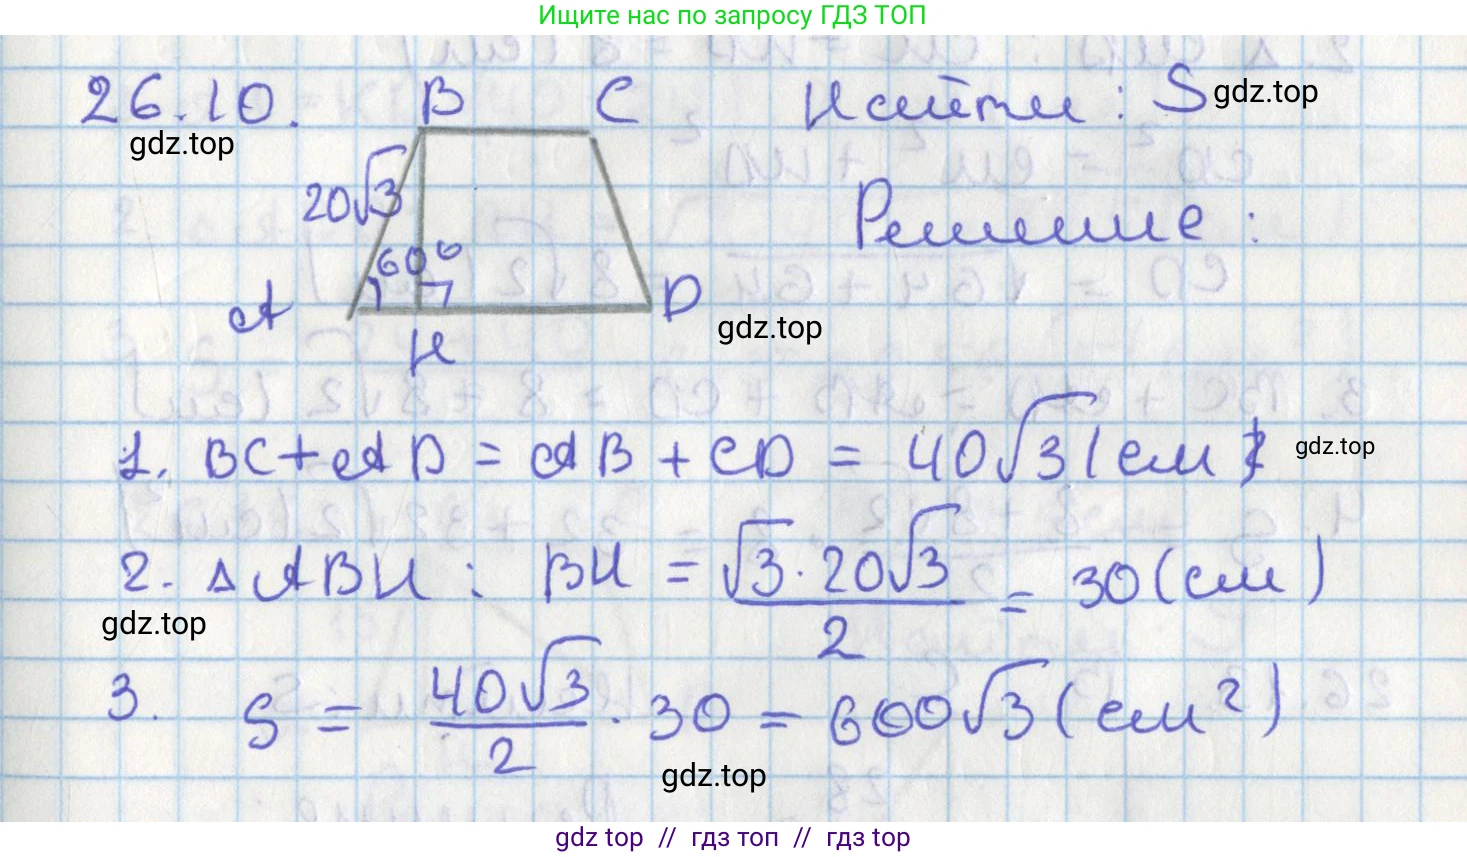 Ищите нас по запросу ГДЗ ТОП
26.10. B C Найти: S gdz.top
gdz.top
20√3 Решение:
60°
A D
gdz.top
H
1. BC + AD = AB + CD = 40√3 (см) gdz.top
2. △ABH: BH = √3 · 20√3 / 2 = 30 (см)
gdz.top
3. S = 40√3 / 2 · 30 = 600√3 (см²)
gdz.top
gdz top // гдз топ // гдз top